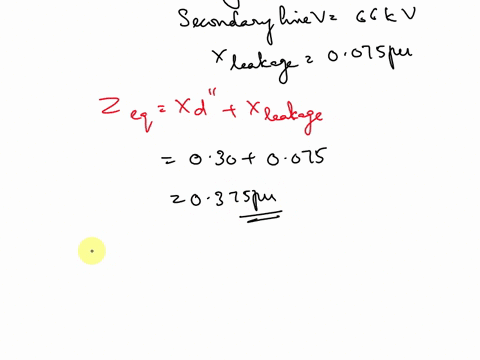 Secondary line V = 66 kV
X leakage = 0.075 pu
Z eq = Xd" + X leakage
= 0.30 + 0.075
= 0.375 pu